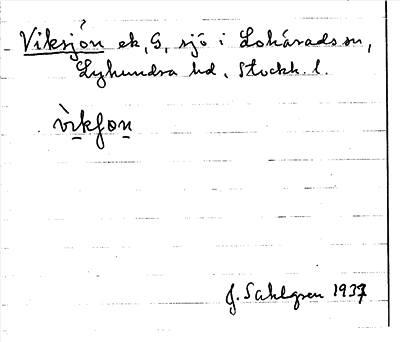 Viksjön ek, G, sjö i Lohärads sn,
Lyhundra hd, Stockh. l.
vikʃon
J. Sahlgren 1937